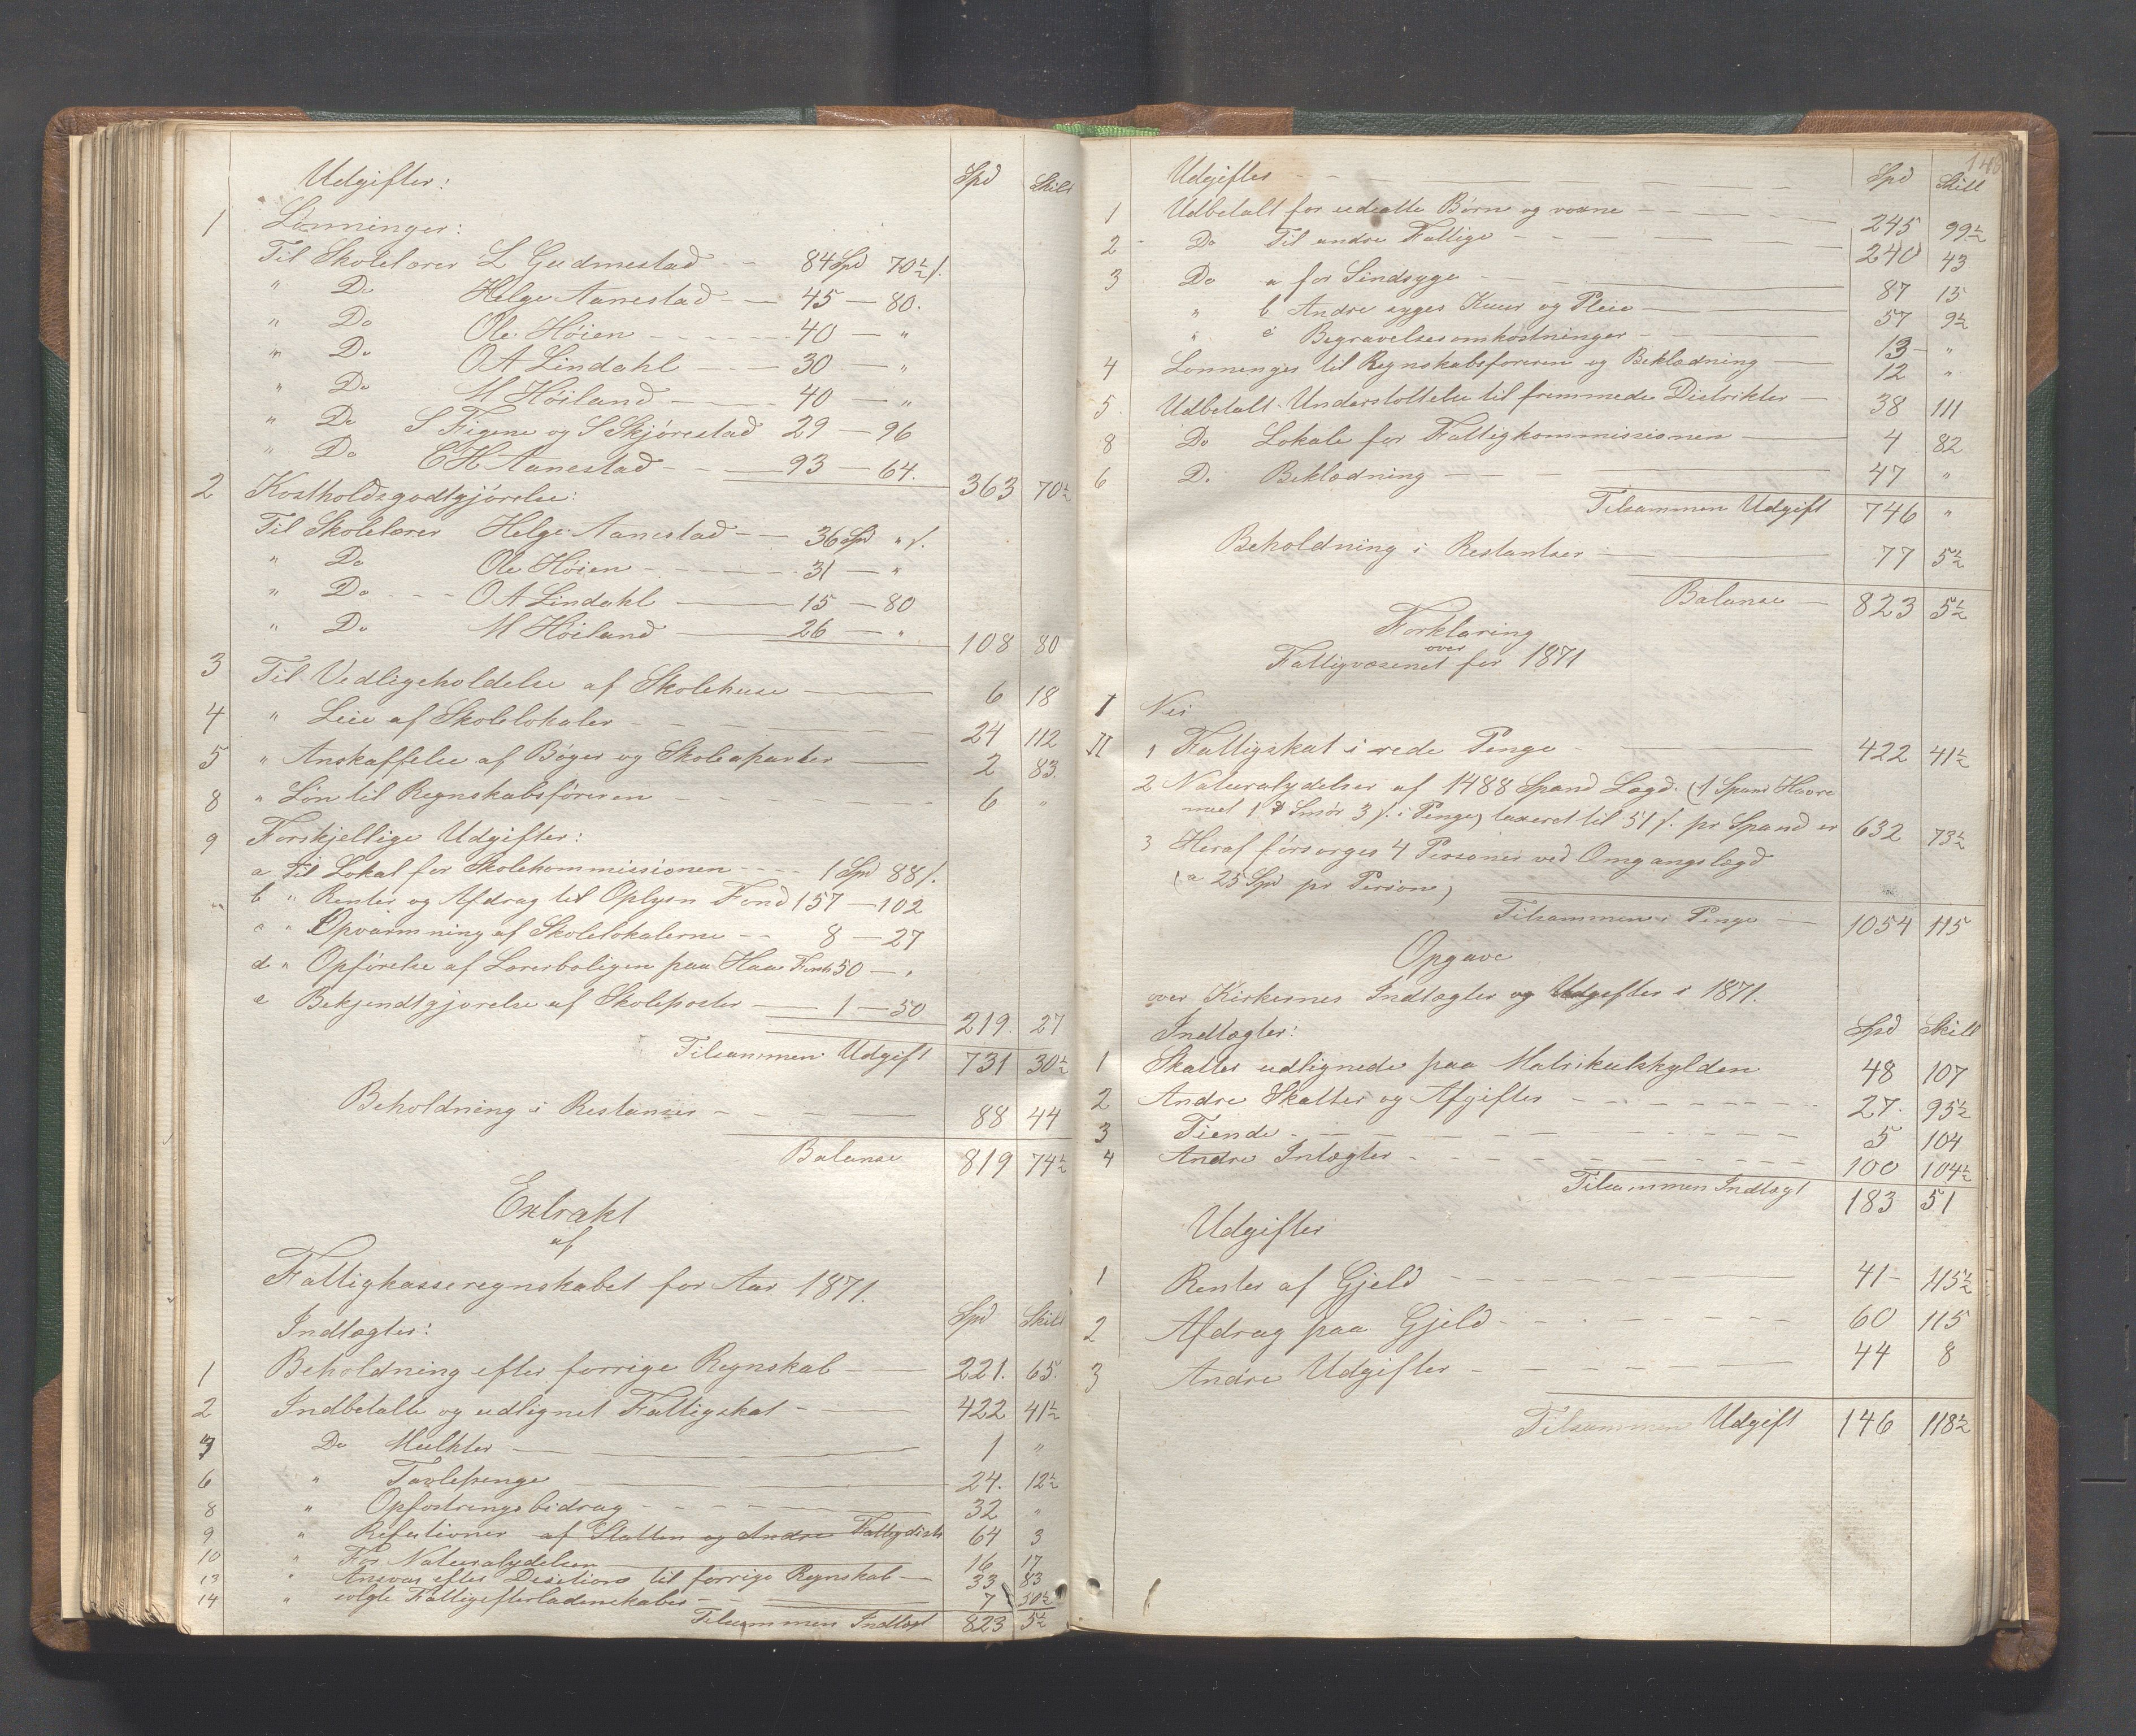 Udgifter: Spd Skill
1 Lønninger:
Til Skolelærer L Gudmestad -- 84 Spd 70½ ß.
" Do Helge Aanestad -- 45 — 80.
" Do Ole Høien ------ 40 — "
" Do O A Lindahl --- 30 — "
" Do M Høiland --- 40 — "
" Do S Figene og S Skjørestad 29 — 96
" Do E H Aanestad -- 93 — 64. 363 70½
2 Kostholdsgodtgjørelse:
Til Skolelærer Helge Aanestad -- 36 Spd " ß.
" Do Ole Høien ------ 31 — "
" Do --- O A Lindahl — 15 — 80
" Do M Høiland — 26 — " 108 80
3 Til Vedligeholdelse af Skolehuse — 6 18
4 " Leie af Skolelokaler ------ 24 112
5 " Anskaffelse af Bøger og Skoleaparater — 2 83.
8 " Løn til Regnskabsføreren ------ 6 "
9 Forskjellige Udgifter:
a Til Lokal for Skolekommissionen ---- 1 Spd 88 ß.
b " Renter og Afdrag til Oplysn Fond 157 — 102
c " Opvarmning af Skolelokalerne -- 8 — 27
d " Opførelse af Lærerboligen paa Haa 50 — "
e Bekjendtgjørelse af Skoleposter — 1 — 50 219. 27
Tilsammen Udgift 731 30½
Beholdning i Restanser --- 88 44
Balanse 819 74½
Extrakt
af
Fattigkasseregnskabet for Aar 1871.
Indtægter: Spd Skill
1 Beholdning efter forrige Regnskab — 221. 65.
2 Indbetalte og udlignet Fattigskat — 422 41½
Do Mulkter — 1 "
6 " Tavlepenge — 24. 12½
8 " Opfostringsbidrag ---- 32 "
9 " Refutioner af Statten og Andre Fattigdistr 64 3
10 " For Naturalydelser — 16 17
13 " Ansvar efter Desition til forrige Regnskab — 33 83
14 " solgte Fattigefterladenskaber -- 7 50½
Tilsammen Indtægt 823 5½
140
Udgifter ---- Spd Skill
1 Udbetalt for udsatte Børn og voxne ---- 245 99½
2 Do Til andre Fattige ---- 240 43
3 Do a for Sindsyge -- 87 15
" b Andre syges Kuur og Pleie — 57 9½
" c Begravelsesomkostninger --- 13 — "
4 Lønninger til Regnskabsføreren og Beklædning — 12 "
5. Udbetalt Understøttelse til fremmede Distrikter — 38 111
8 Do Lokale for Fattigkommissionen — 4 82
6 Do Beklædning — 47 "
Tilsammen Udgift 746 "
Beholdning i Restantser — 77 5½
Balanse — 823 5½
Forklaring
over
Fattigvæsenet for 1871
I Nei
II 1 Fattigskat i rede Penge — 422 41½
2 Naturalydelser af 1488 Spand Lægd. (1 Spand Havre
med 1 ℔ Smør 3 ß. i Penge) taxeret til 51 ß. pr Spand er 632 73½
3 Heraf førsørges 4 Personer ved Omgangslægd
(a 25 Spd pr Person)
Tilsammen i Penge — 1054 115
Opgave
over Kirkernes Indtægter og Udgifter i 1871.
Indtægter: Spd Skill
1 Skatter udlignede paa Matrikulskylden 48 107
2 Andre Skatter og Afgifter ------ 27. 95½
3 Tiende ------ 5 104
4 Andre Intægter ------ 100 104½
Tilsammen Indtægt 183 51
Udgifter
1 Renter af Gjeld ------ 41 — 115½
2 Afdrag paa Gjeld ------ 60 115
3 Andre Udgifter ------ 44 8
Tilsammen Udgift 146 118½